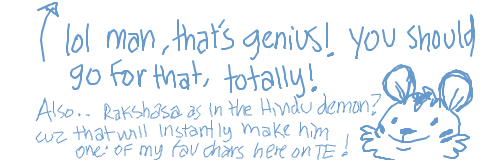 lol man, that's genius! you should
go for that, totally!
Also.. Rakshasa as in the Hindu demon?
cuz that will instantly make him
one of my fav chars here on TE!